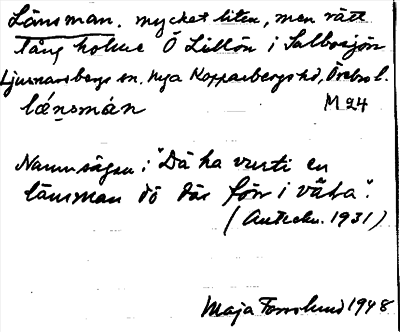 Länsman. mycket liten, men rätt
lång holme Ö Lillön i Salbosjön
Ljusnarsbergs sn. Nya Kopparbergs hd, Örebro l.
lǽnsmán M 24
Namnsägen: "Dä ha vurti en
länsman dö där förr i väla".
(Anteckn. 1931)
Maja Forslund 1948